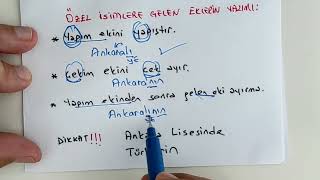 ÖZEL İSİMLERE GELEN EKLERİN YAZIMI:
* Yapım ekini yapıştır.
Ankaralı
YE
* Çekim ekini çek ayır.
Ankara'nın
* Yapım ekinden sonra gelen eki ayırma.
Ankaralının
YE
DİKKAT!!! Ankara Lisesinde